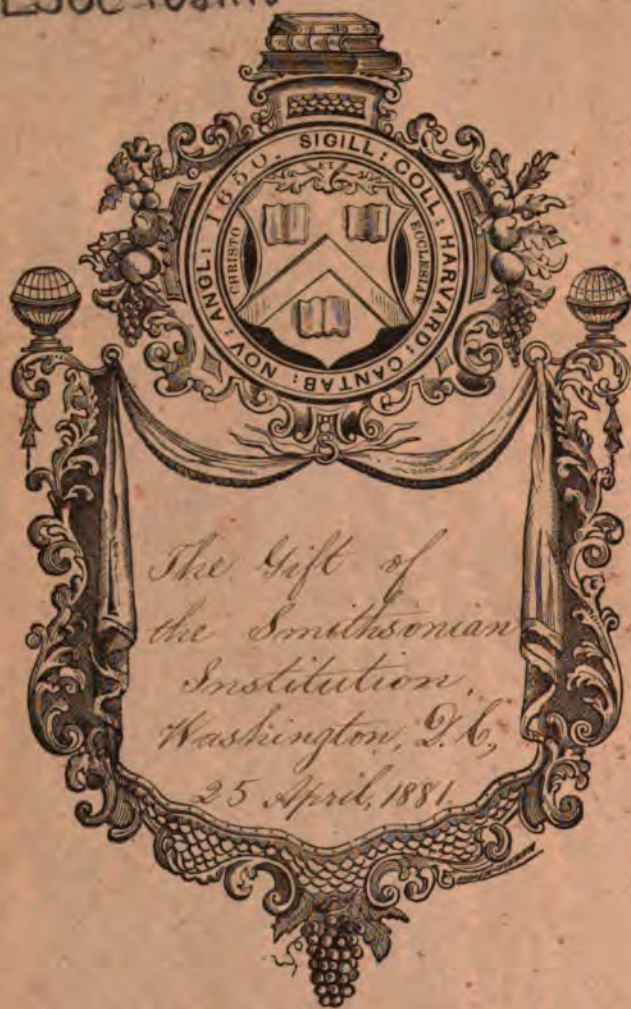 SIGILL: COLL: HARVARD: CANTAB: NOV: ANGL: 1650.
ET
CHRISTO
ECCLESIAE
The Gift of
the Smithsonian
Institution,
Washington, D.C.,
25 April, 1881.